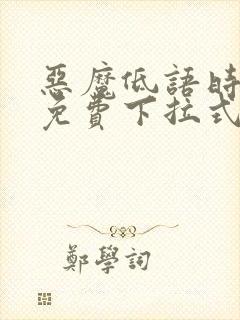 惡魔低語時
免費下拉式
鄭學詞